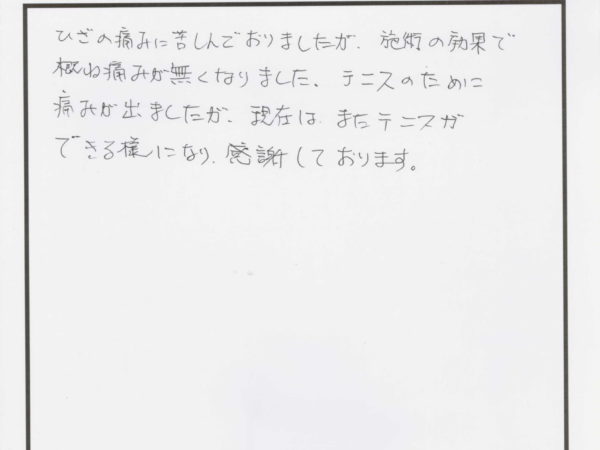 ひざの痛みに苦しんでおりましたが、施術の効果で
概ね痛みが無くなりました。テニスのために
痛みが出ましたが、現在は、またテニスが
できる様になり、感謝しております。